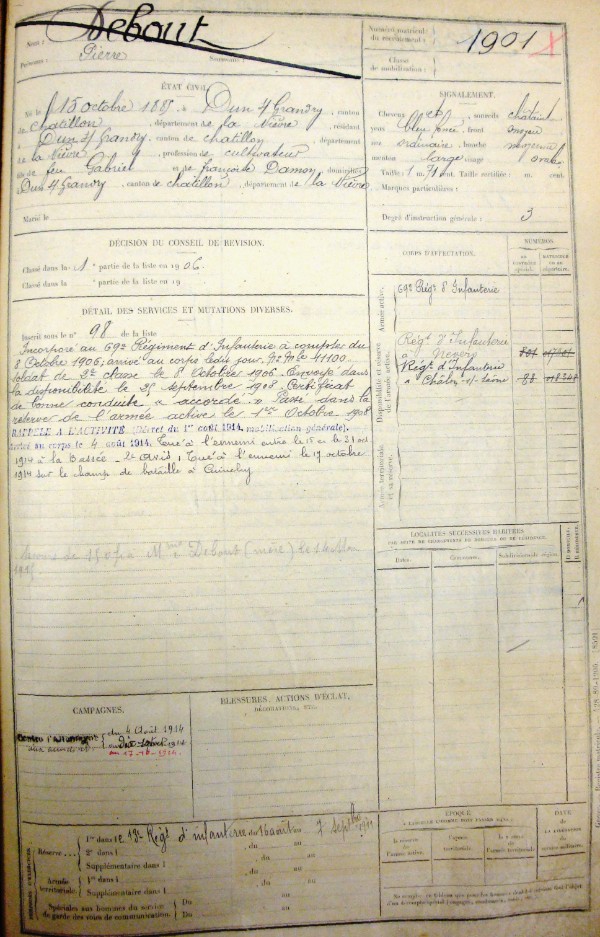 Debout
Nom :
Prénoms : Pierre Surnoms :
Numéro matricule
du recrutement : 1901
Classe
de mobilisation :
ÉTAT CIVIL.
Né le 15 octobre 188 à Dun s/ Grandry, canton
de Chatillon, département de la Nièvre, résidant
à Dun s/ Grandry, canton de Chatillon, département
de la Nièvre, profession de cultivateur
fils de feu Gabriel et de françoise Damon, domiciliés
Dun s/ Grandry, canton de Chatillon, département de la Nièvre
Marié le
SIGNALEMENT.
Cheveux et sourcils châtain
yeux bleu foncé, front moyen
nez ordinaire, bouche moyenne
menton large visage ovale
Taille : 1 m. 71 cent. Taille rectifiée : m. cent.
Marques particulières :
Degré d'instruction générale : 3
DÉCISION DU CONSEIL DE REVISION.
Classé dans la 1 partie de la liste en 1906.
Classé dans la partie de la liste en 19
DÉTAIL DES SERVICES ET MUTATIONS DIVERSES.
Inscrit sous le n° 98 de la liste
Incorporé au 69e Régiment d'Infanterie à compter du
8 Octobre 1906, arrivé au corps ledit jour, Nº Mle 41100
soldat de 2e classe le 8 Octobre 1906. Envoyé dans
la disponibilité le 25 septembre 1908. Certificat
de bonne conduite « accordé ». Passé dans la
réserve de l'armée active le 1er Octobre 1908
RAPPELÉ A L'ACTIVITÉ (Décret du 1er août 1914, mobilisation générale).
Arrivé au corps le 4 août 1914. Tué à l'ennemi entre le 15 et le 31 oct
1914 à la Bassée - 2e avis : Tué à l'ennemi le 17 octobre
1914 sur le champ de bataille à Cuinchy
Secours de 150 f à Mme Debout (mère) le
CORPS D'AFFECTATION.
NUMÉROS
AU CONTRÔLE spécial.
MATRICULE ou au répertoire.
Armée active.
69e Régt d'Infanterie
Disponibilité et réserve de l'armée active.
Régt d'Infanterie
à Nevers
Régt d'Infanterie
à Châlon s/ Saône 83
Armée territoriale et sa réserve.
LOCALITÉS SUCCESSIVES HABITÉES
PAR SUITE DE CHANGEMENT DE DOMICILE OU DE RÉSIDENCE.
Dates.
Communes.
Subdivision de région.
D. domicile.
R. résidence.
CAMPAGNES.
Contre l'Allemagne du 4 Août 1914
au 17-10-1914.
BLESSURES, ACTIONS D'ÉCLAT,
DÉCORATIONS, ETC.
PÉRIODES D'EXERCICES.
Réserve
1re dans le 13e Régt d'infanterie du 16 août au 7 Septbre 1911
2e dans l , du au
Supplémentaire dans l , du au
Armée territoriale
1re dans l , du au
Supplémentaire dans l , du au
Spéciales aux hommes du service
de garde des voies de communication.
Du au
Du au
ÉPOQUE
la réserve de l'armée active.
l'armée territoriale.
la réserve de l'armée territoriale.
DATE
de la LIBÉRATION du service militaire.